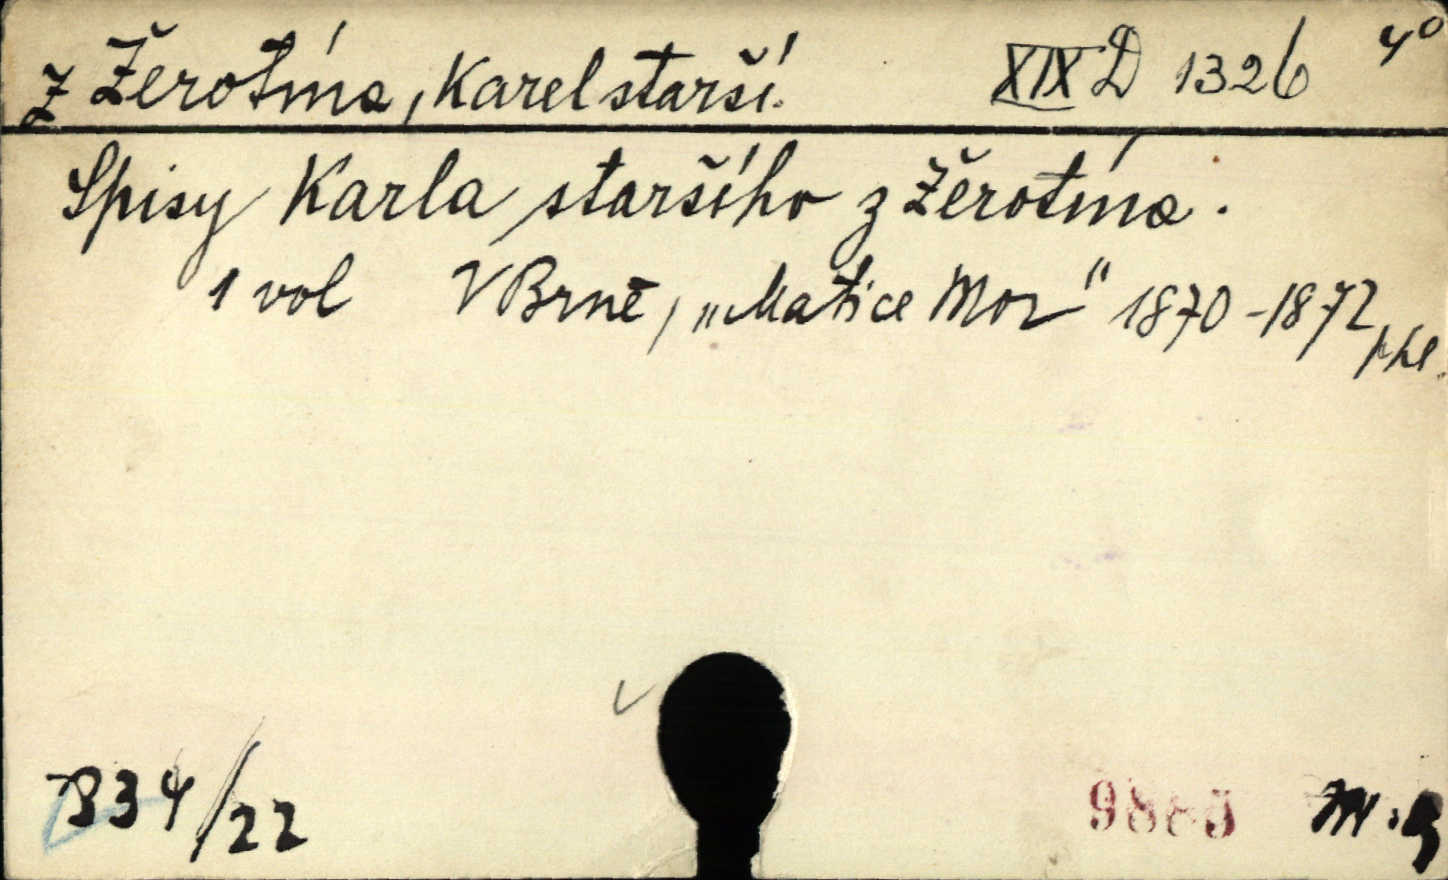 z Žerotína, Karel starší. XIX D 1326 4°
Spisy Karla staršího z Žěrotína.
1 vol V Brně, „Matice Mor" 1870-1872
834/22